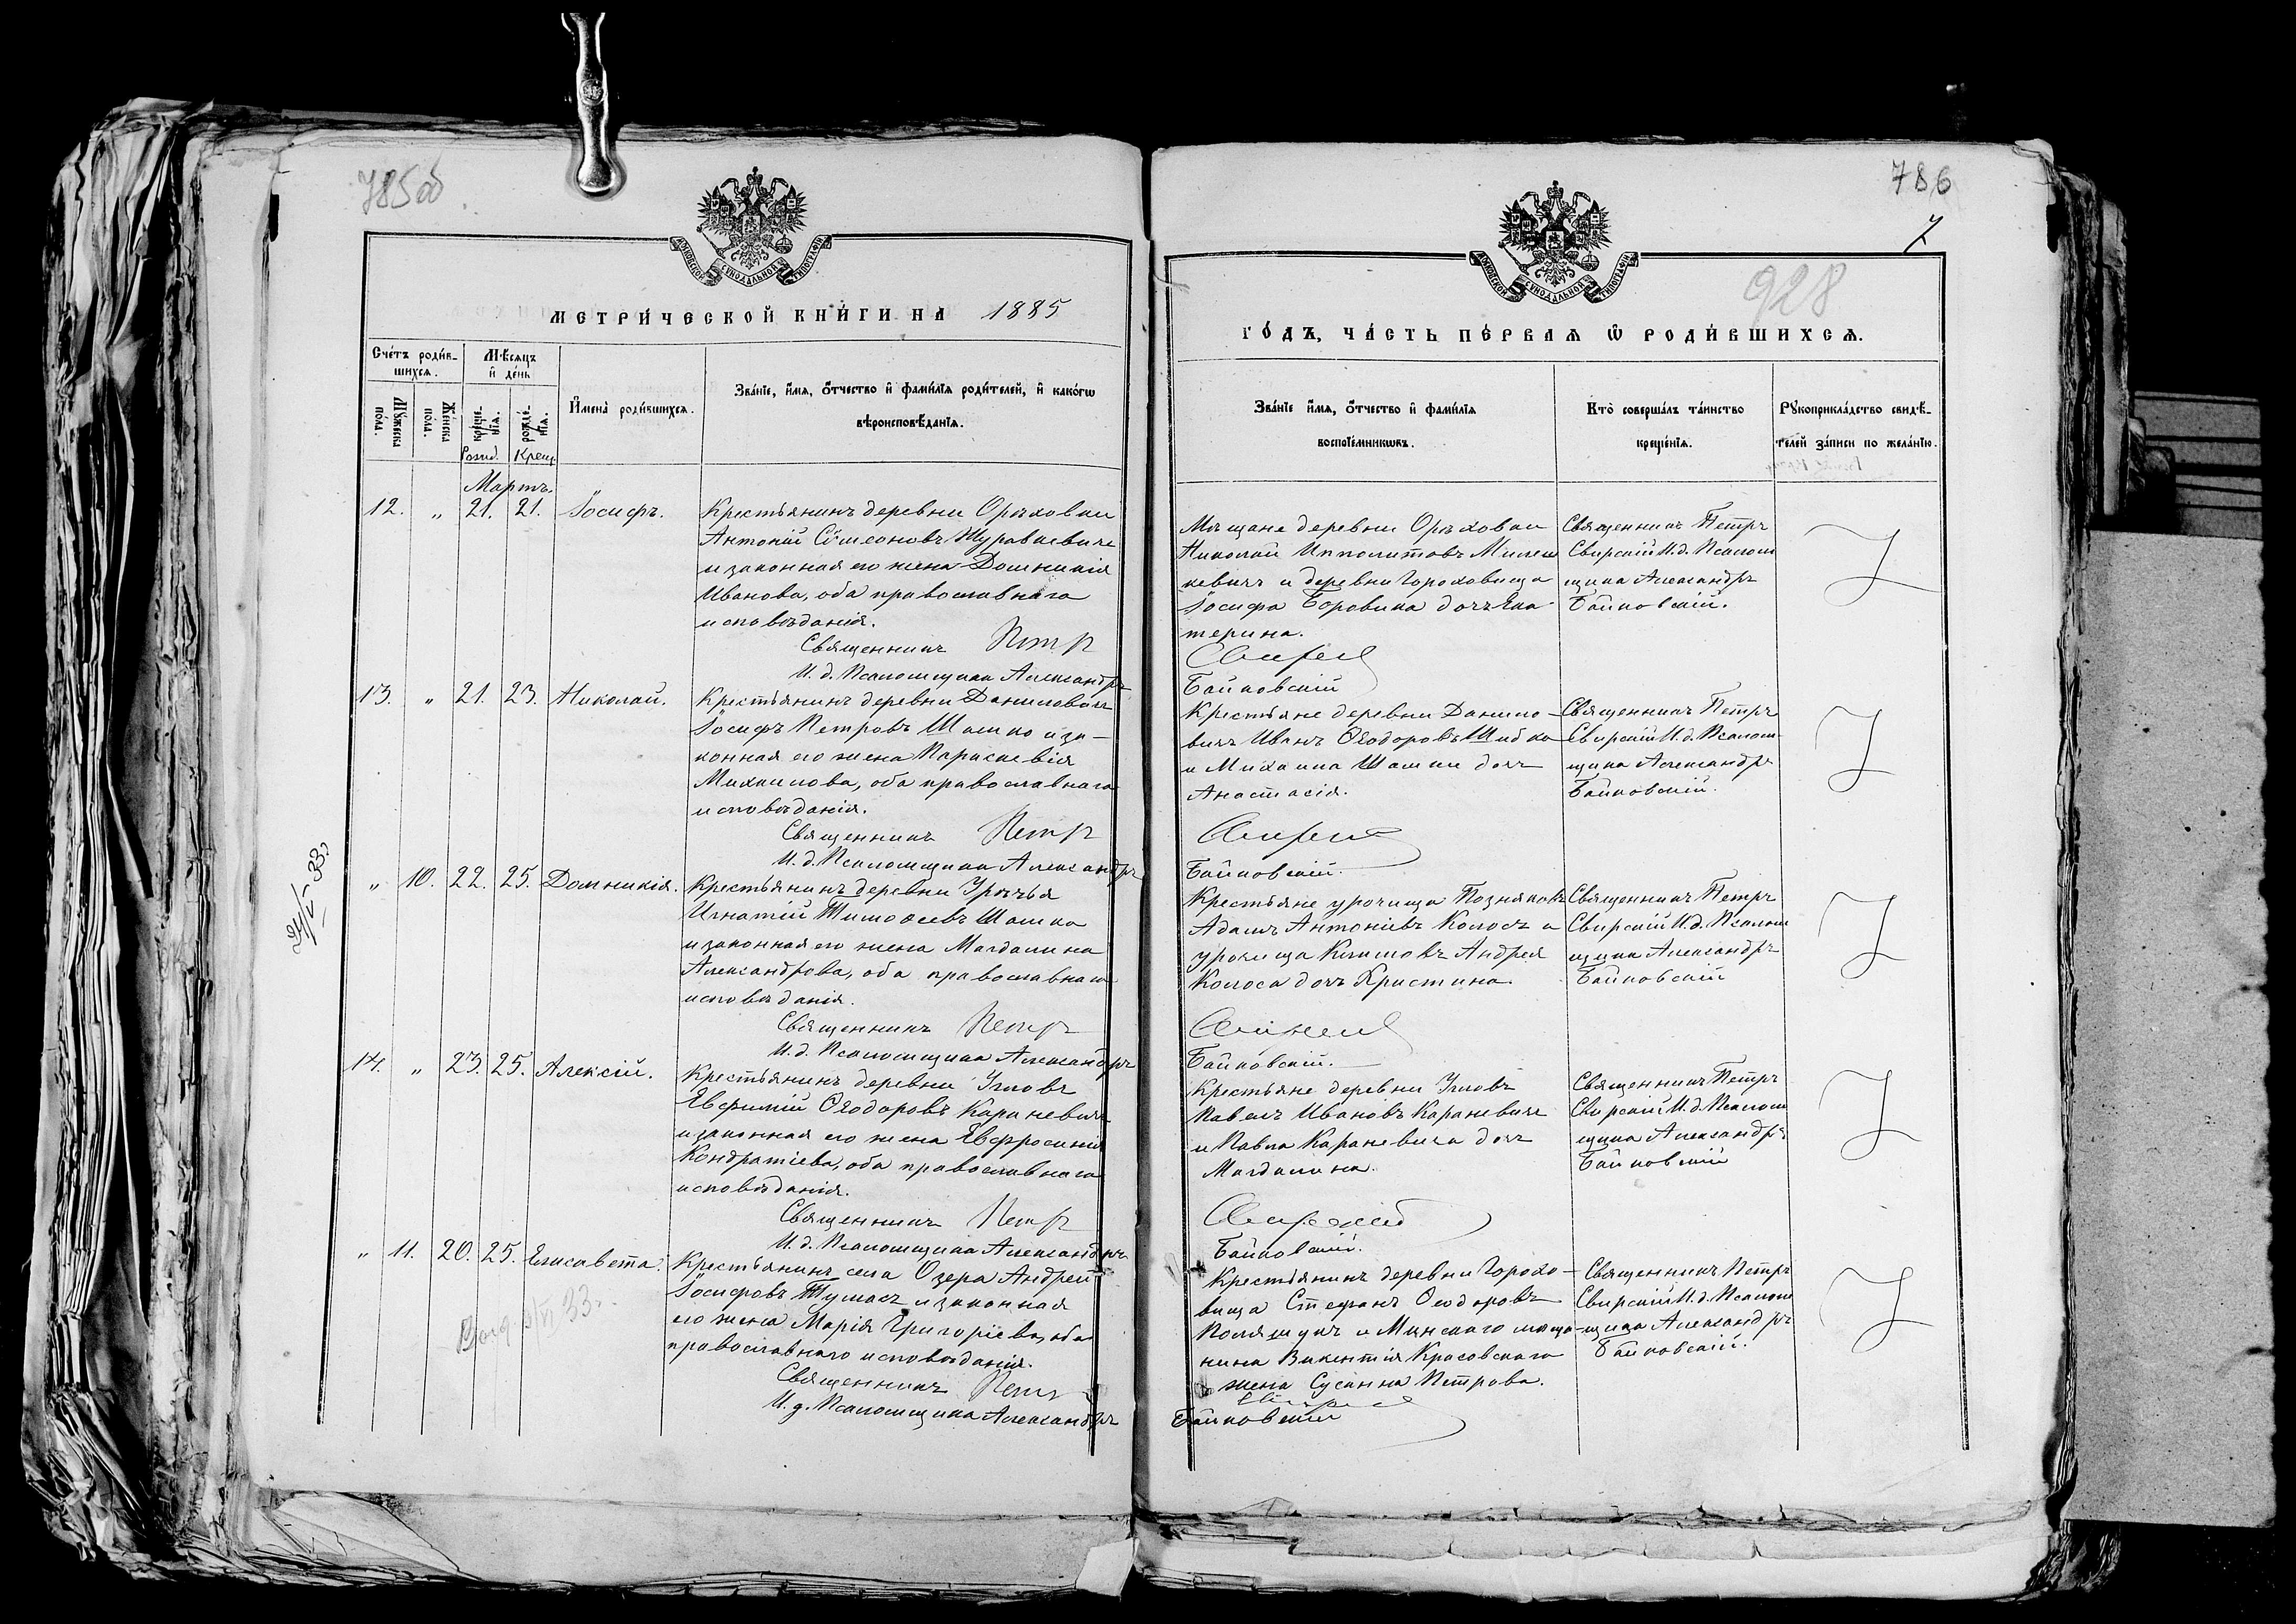 785об
МОСКОВСКОЙ СѴНОДАЛЬНОЙ ТИПОГРАФІИ
МЕТРИ́ЧЕСКОЙ КНИ́ГИ НА 1885
Сче́тъ роди́в-
шихсѧ.
Мѣ́сѧцъ
и҆ де́нь
Мꙋ́жеска
по́ла.
Же́нска
по́ла.
креще́-
нїѧ.
рожде́-
нїѧ.
Рожд. Крещ.
И҆мена̀ роди́вшихсѧ.
Зва́нїе, и҆́мѧ, ѻ҆́тчество и҆ фами́лїѧ роди́телей, и҆ како́гѡ
вѣроисповѣ́данїѧ.
Мартъ.
12. „ 21. 21. Іосифъ.
Крестьянинъ деревни Орѣховки
Антоній Сѵмеоновъ Журавкевичъ
и законная его жена Домникія
Иванова, оба православнаго
исповѣданія.
Священникъ Петръ
И. д. Псаломщика Александръ
13. „ 21. 23. Николай.
Крестьянинъ деревни Даниловичъ
Іосифъ Петровъ Шашко и за-
конная его жена Параскевія
Михаилова, оба православнаго
исповѣданія.
Священникъ Петръ
И. д. Псаломщика Александръ
„ 10. 22. 25. Домникія.
Крестьянинъ деревни Урѣчья
Игнатій Тимоѳеевъ Шашка
и законная его жена Магдалина
Александрова, оба православнаго
исповѣданія.
Священникъ Петръ
И. д. Псаломщика Александръ
14. „ 23. 25. Алексій.
Крестьянинъ деревни Угловъ
Евфимій Ѳеодоровъ Караневичъ
и законная его жена Евфросинія
Кондратіева, оба православнаго
исповѣданія.
Священникъ Петръ
И. д. Псаломщика Александръ
„ 11. 20. 25. Елисавета.
Крестьянинъ села Озера Андрей
Іосифовъ Тумасъ и законная
его жена Марія Григоріева, оба
православнаго исповѣданія.
Священникъ Петръ
И. д. Псаломщика Александръ
786
7
928
МОСКОВСКОЙ СѴНОДАЛЬНОЙ ТИПОГРАФІИ
ГО́ДЪ, ЧА́СТЬ ПЕ́РВАѦ Ѿ РОДИ́ВШИХСѦ.
Зва́нїе и҆́мѧ, ѻ҆́тчество и҆ фами́лїѧ
воспрїе́мникѡвъ.
Кто̀ соверша́лъ та́инство
креще́нїѧ.
Рꙋкоприкла́дство свидѣ́-
телей за́писи по жела́нїю.
Мѣщане деревни Орѣховки
Николай Ипполитовъ Милеш
кевичъ и деревни Гороховища
Іосифа Боровика дочь Ека-
терина.
Свирскій
Байковскій
Священникъ Петръ
Свирскій И. д. Псалом
щика Александръ
Байковскій.
Крестьяне деревни Данило-
вичъ Иванъ Ѳеодоровъ Шибко
и Михаила Шашки дочь
Анастасія.
Свирскій
Байковскій.
Священникъ Петръ
Свирскій И. д. Псалом-
щика Александръ
Байковскій.
Крестьяне урочища Позняковъ
Адамъ Антоніевъ Колосъ и
урочища Климовъ Андрея
Колоса дочь Христина.
Свирскій
Байковскій.
Священникъ Петръ
Свирскій И. д. Псалом
щика Александръ
Байковскій
Крестьяне деревни Угловъ
Павелъ Ивановъ Караневичъ
и Павла Караневича дочь
Магдалина.
Свирскій
Байковскій.
Священникъ Петръ
Свирскій И. д. Псалом
щика Александръ
Байковскій
Крестьянинъ деревни Горохо-
вища Стефанъ Ѳеодоровъ
Полящукъ и Минскаго мѣща-
нина Викентія Красовскаго
жена Сусанна Петрова.
Свирскій
Байковскій
Священникъ Петръ
Свирскій И. д. Псалом
щика Александръ
Байковскій.